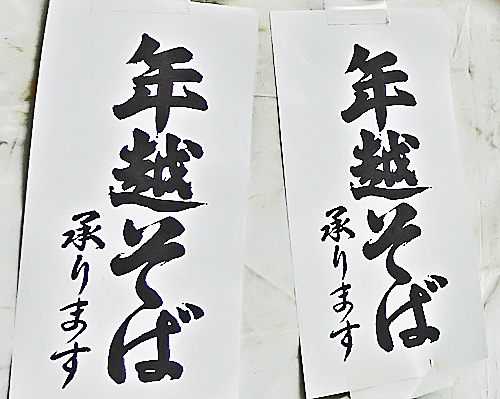 年越そば
承ります
年越そば
承ります